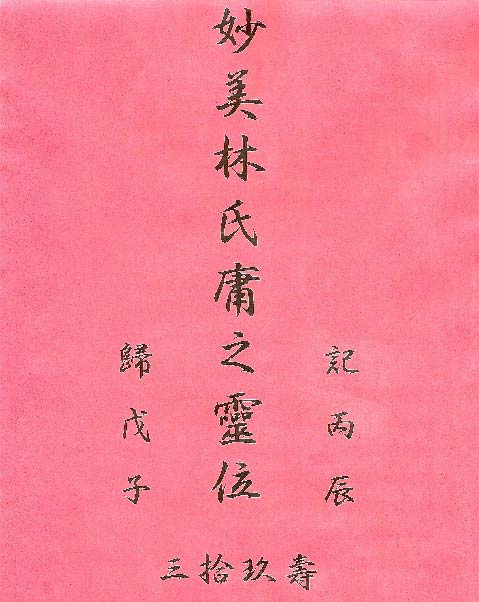 記丙辰
妙美林氏庸之靈位
歸戊子
壽玖拾三